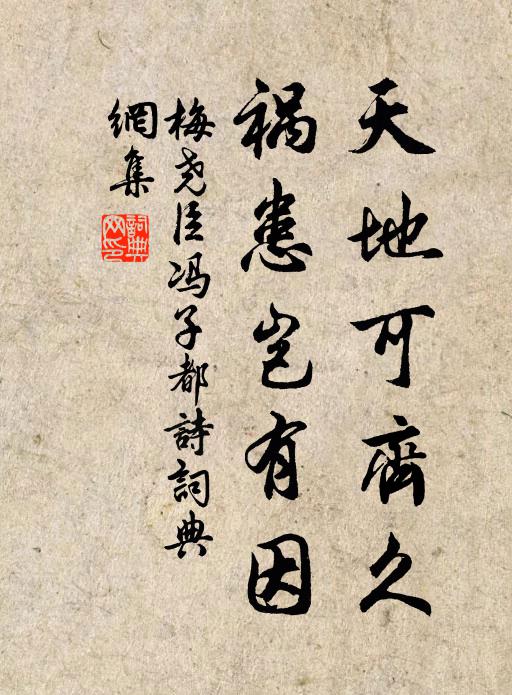 天地可齊久
祸患岂有因
梅尧臣冯子都詩詞典
網集
詞典
网印